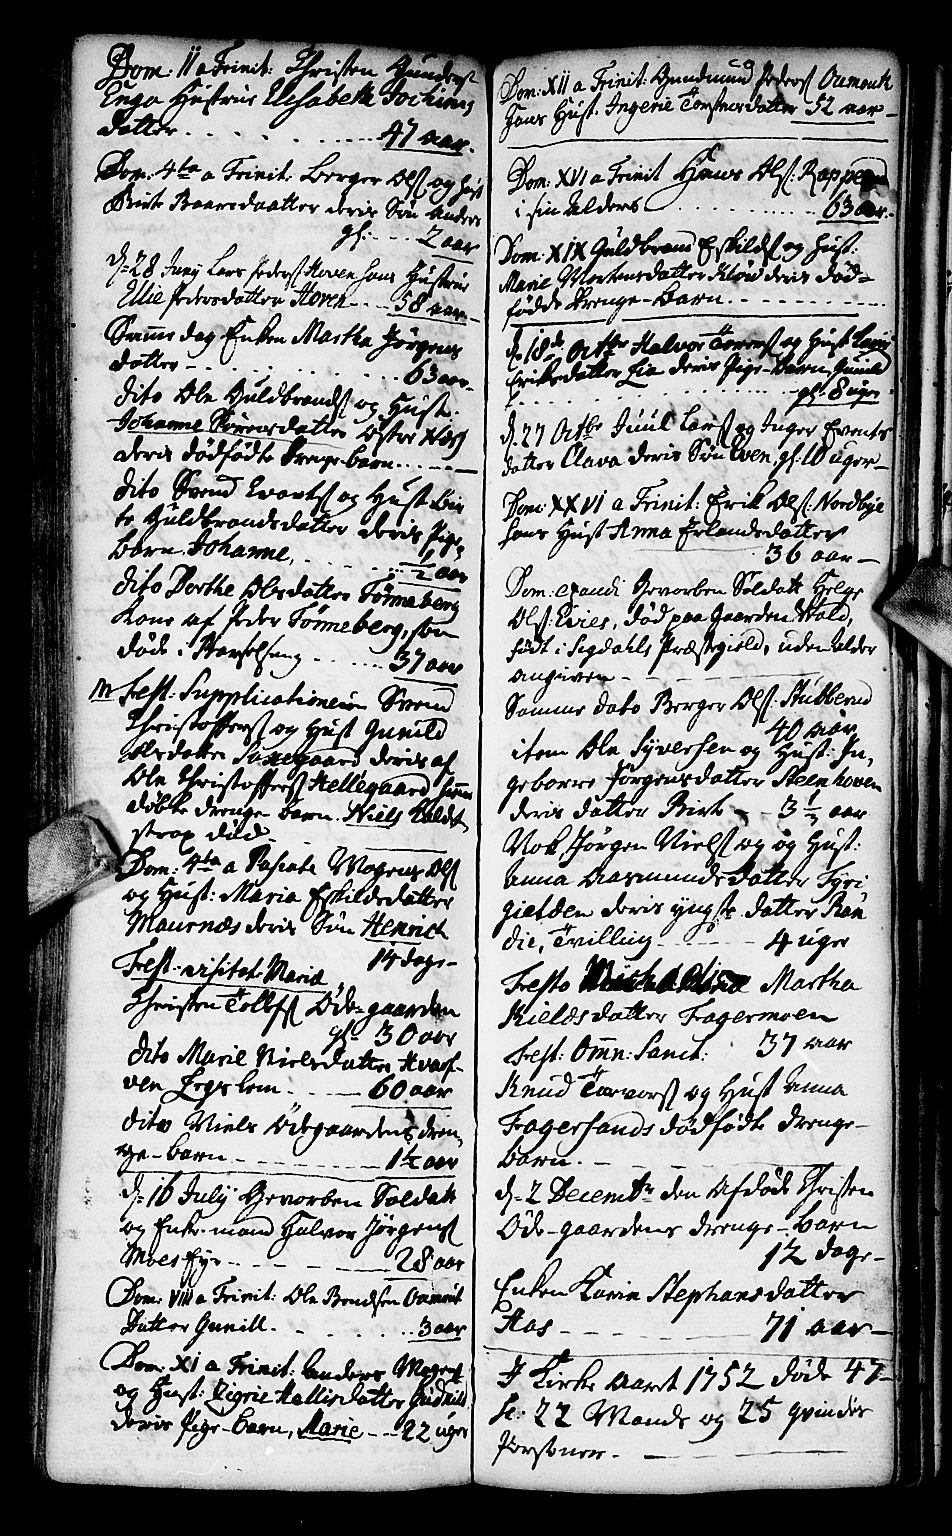 Dom: 11 a Trinit: Christen Gunders
Enga Hustrue Elisabeth Jochims
datter . . . . . . 47 aar.
Dom: 4te a Trinit: Berger Ols og Hust
Birte Baarsdaatter deris Søn Anders
gl: . . . 2 aar
d: 28 Juny Lars Peders Hoven hans Hustrue
Ellie Pedersdatter Hoven . . 58 aar
Samme dag Enken Martha Jørgens
datter . . . . . . 63 aar
dito Ole Guldbrands og Hust:
Johanne Sørensdatter Øster Næs
deris dødfødte Drenge barn . . .
dito Svend Evarts og Hust Bir
te Guldbrandsdatter deris Pige
barn Johanne, . . . . 1/2 aar
dito Dorthe Olsdatter Tønneberg
Kone af Peder Tønneberg, som
døde i Barselseng . . . . 37 aar
M Fest: Supplicationem Svend
Christoffers og Hust Gunild
Olsdatter deris af
Ole Christoffers Hellegaard hiem
døbte drenge barn. Niels kaldet
strax død.
Dom: 4ta a Pasiate Mogens Ols
og Hust: Maria Eskildsdatter
Mauernæs deris Søn Henrich
14 dage
Fest: visitat: Maria
Christen Tollefs Øde-gaarden
gl: 30 aar
dito Marie Nielsdatter Hvals-
ven Legslem . . . 60 aar
dito Niels Ødegaardens dren,
ge-barn . . . . 1 1/2 aar
d: 16 July Gevorben Soldat
og Enke-mand Halvor Jørgens
Moes Eye . . . . 28 aar
Dom: VIII a Trinit: Ole Bendsen Oumout
Datter Gunill . . . . 3 aar
Dom: XI a Trinit: Anders Mogens
og Hust: Sigrie Hallisdatter
deris Pige-barn, Marie . . 22 uger
Dom: XII a Trinit Gundmund Peders Oumouth
hans Hust. Ingerie Torstensdatter 52 aar
Dom: XVI a Trinit Hans Ols: Roppen
i sin Alders . . . . . 63 aar
Dom: XIX Guldbrand Eskilds og Hust:
Marie Mortensdatter Kløv deris død-
fødde Drenge-barn . . . .
d: 18de Octbr Halvor Torers og Hust
Eriksdatter Lia deris Pige-barn, Gunild
gl: 8 uger
d. 27 Octbr Juul Lars og Inger Events
datter Clava deris Søn Even, gl: 10 uger
Dom: XXVI a Trinit: Erik Ols: Nordbye
hans Hust Anna Erlandsdatter
36 aar
Dom: exaudi Gevorben Soldat Helge
Ols: Evies, død paa Gaarden Wold,
født i Sigdahls Præstegield, uden Alder
angiven
Samme dato Berger Ols: Stubberud
40 aar
item Ole Syversen og Hust: In,
geborre Jørgensdatter Steenhoven
deris datter Birte - 3 1/2 aar
Nok Jørgen Niels og og Hust:
Anna Aasmundsdatter Fyri
gietden deris yngste datter Ran
die, Tvilling . . . 4 uger
Festo Martha
Kieldsdatter Fagermoen
Fest: Omn: Sanct: 37 aar
Knud Torvors og Hust Anna
Fagersands dødfødte drenge-
barn.
d: 2 Decembr den Afdøde Christen
Øde-gaardens drenge-barn
12 dage
Enken Karin Stephansdatter
Aas . . . . 71 aar
I Kirke Aaret 1752 døde 47
sc: 22 Mands og 25 qvindes
Personer.